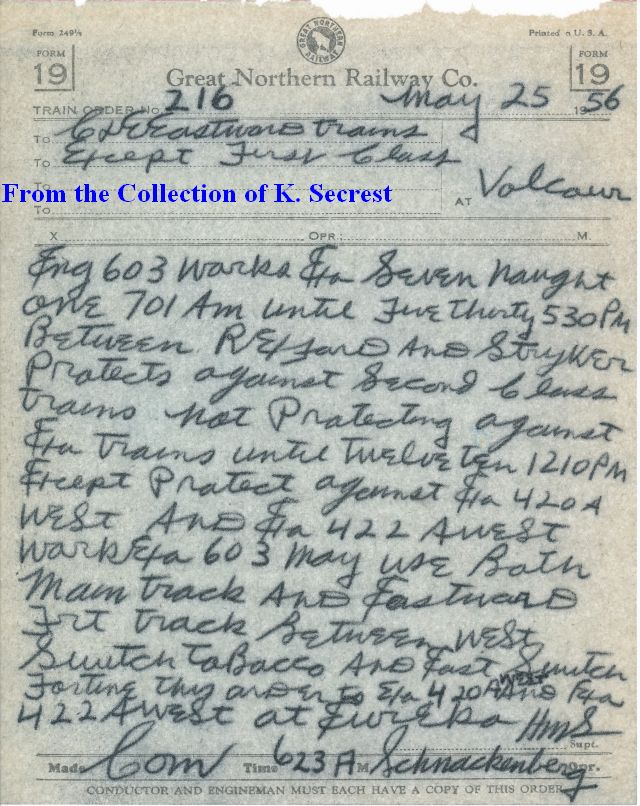 Form 249¼
Printed in U. S. A.
GREAT NORTHERN RAILWAY
FORM 19
FORM 19
Great Northern Railway Co.
TRAIN ORDER No. 216 May 25 1956
To C&E Eastward trains
To Except First Class
To
From the Collection of K. Secrest
To
AT Valcour
X OPR: M
Eng 603 works Exa Seven naught
one 701 Am until Five thirty 530 PM
Between Rexford And Stryker
Protects against Second Class
trains not Protecting against
Exa trains until Twelve ten 1210 PM
Except Protect against Exa 420 A
West And Exa 422 A West
Work Exa 603 May use Both
Main track And Eastward
Frt track Between West
Switch Tobacco And East Switch
Fortine this order to Exa 420 A West And Exa
422 A West at Eureka HMS
Supt.
Made Com Time 623 A M Schnackenberg Opr.
CONDUCTOR AND ENGINEMAN MUST EACH HAVE A COPY OF THIS ORDER